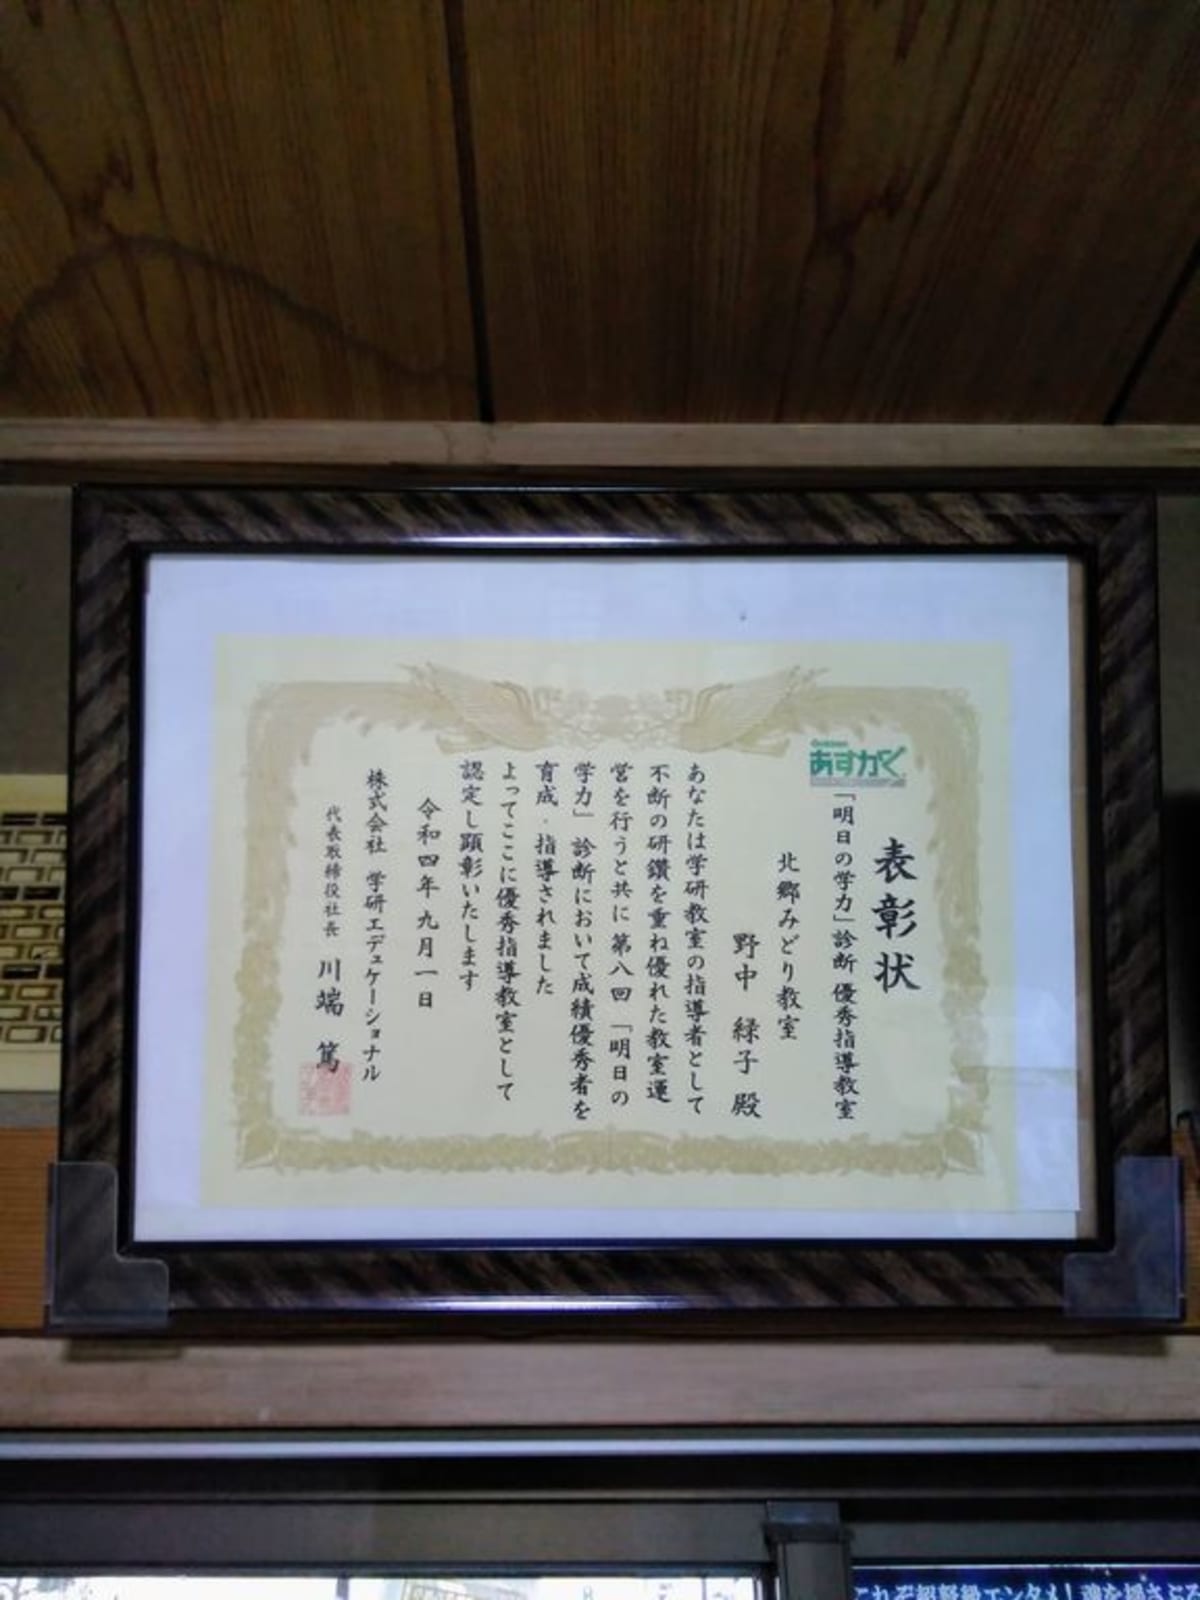 表彰状
あすかく
「明日の学力」診断 優秀指導教室
北郷みどり教室
野中 緑子 殿
あなたは学研教室の指導者として
不断の研鑽を重ね優れた教室運
営を行うと共に第八回「明日の
学力」診断において成績優秀者を
育成・指導されました
よってここに優秀指導教室として
認定し顕彰いたします
令和四年九月一日
株式会社 学研エデュケーショナル
代表取締役社長 川端 篤
これぞ超弩級エンタメ！魂を揺さぶる